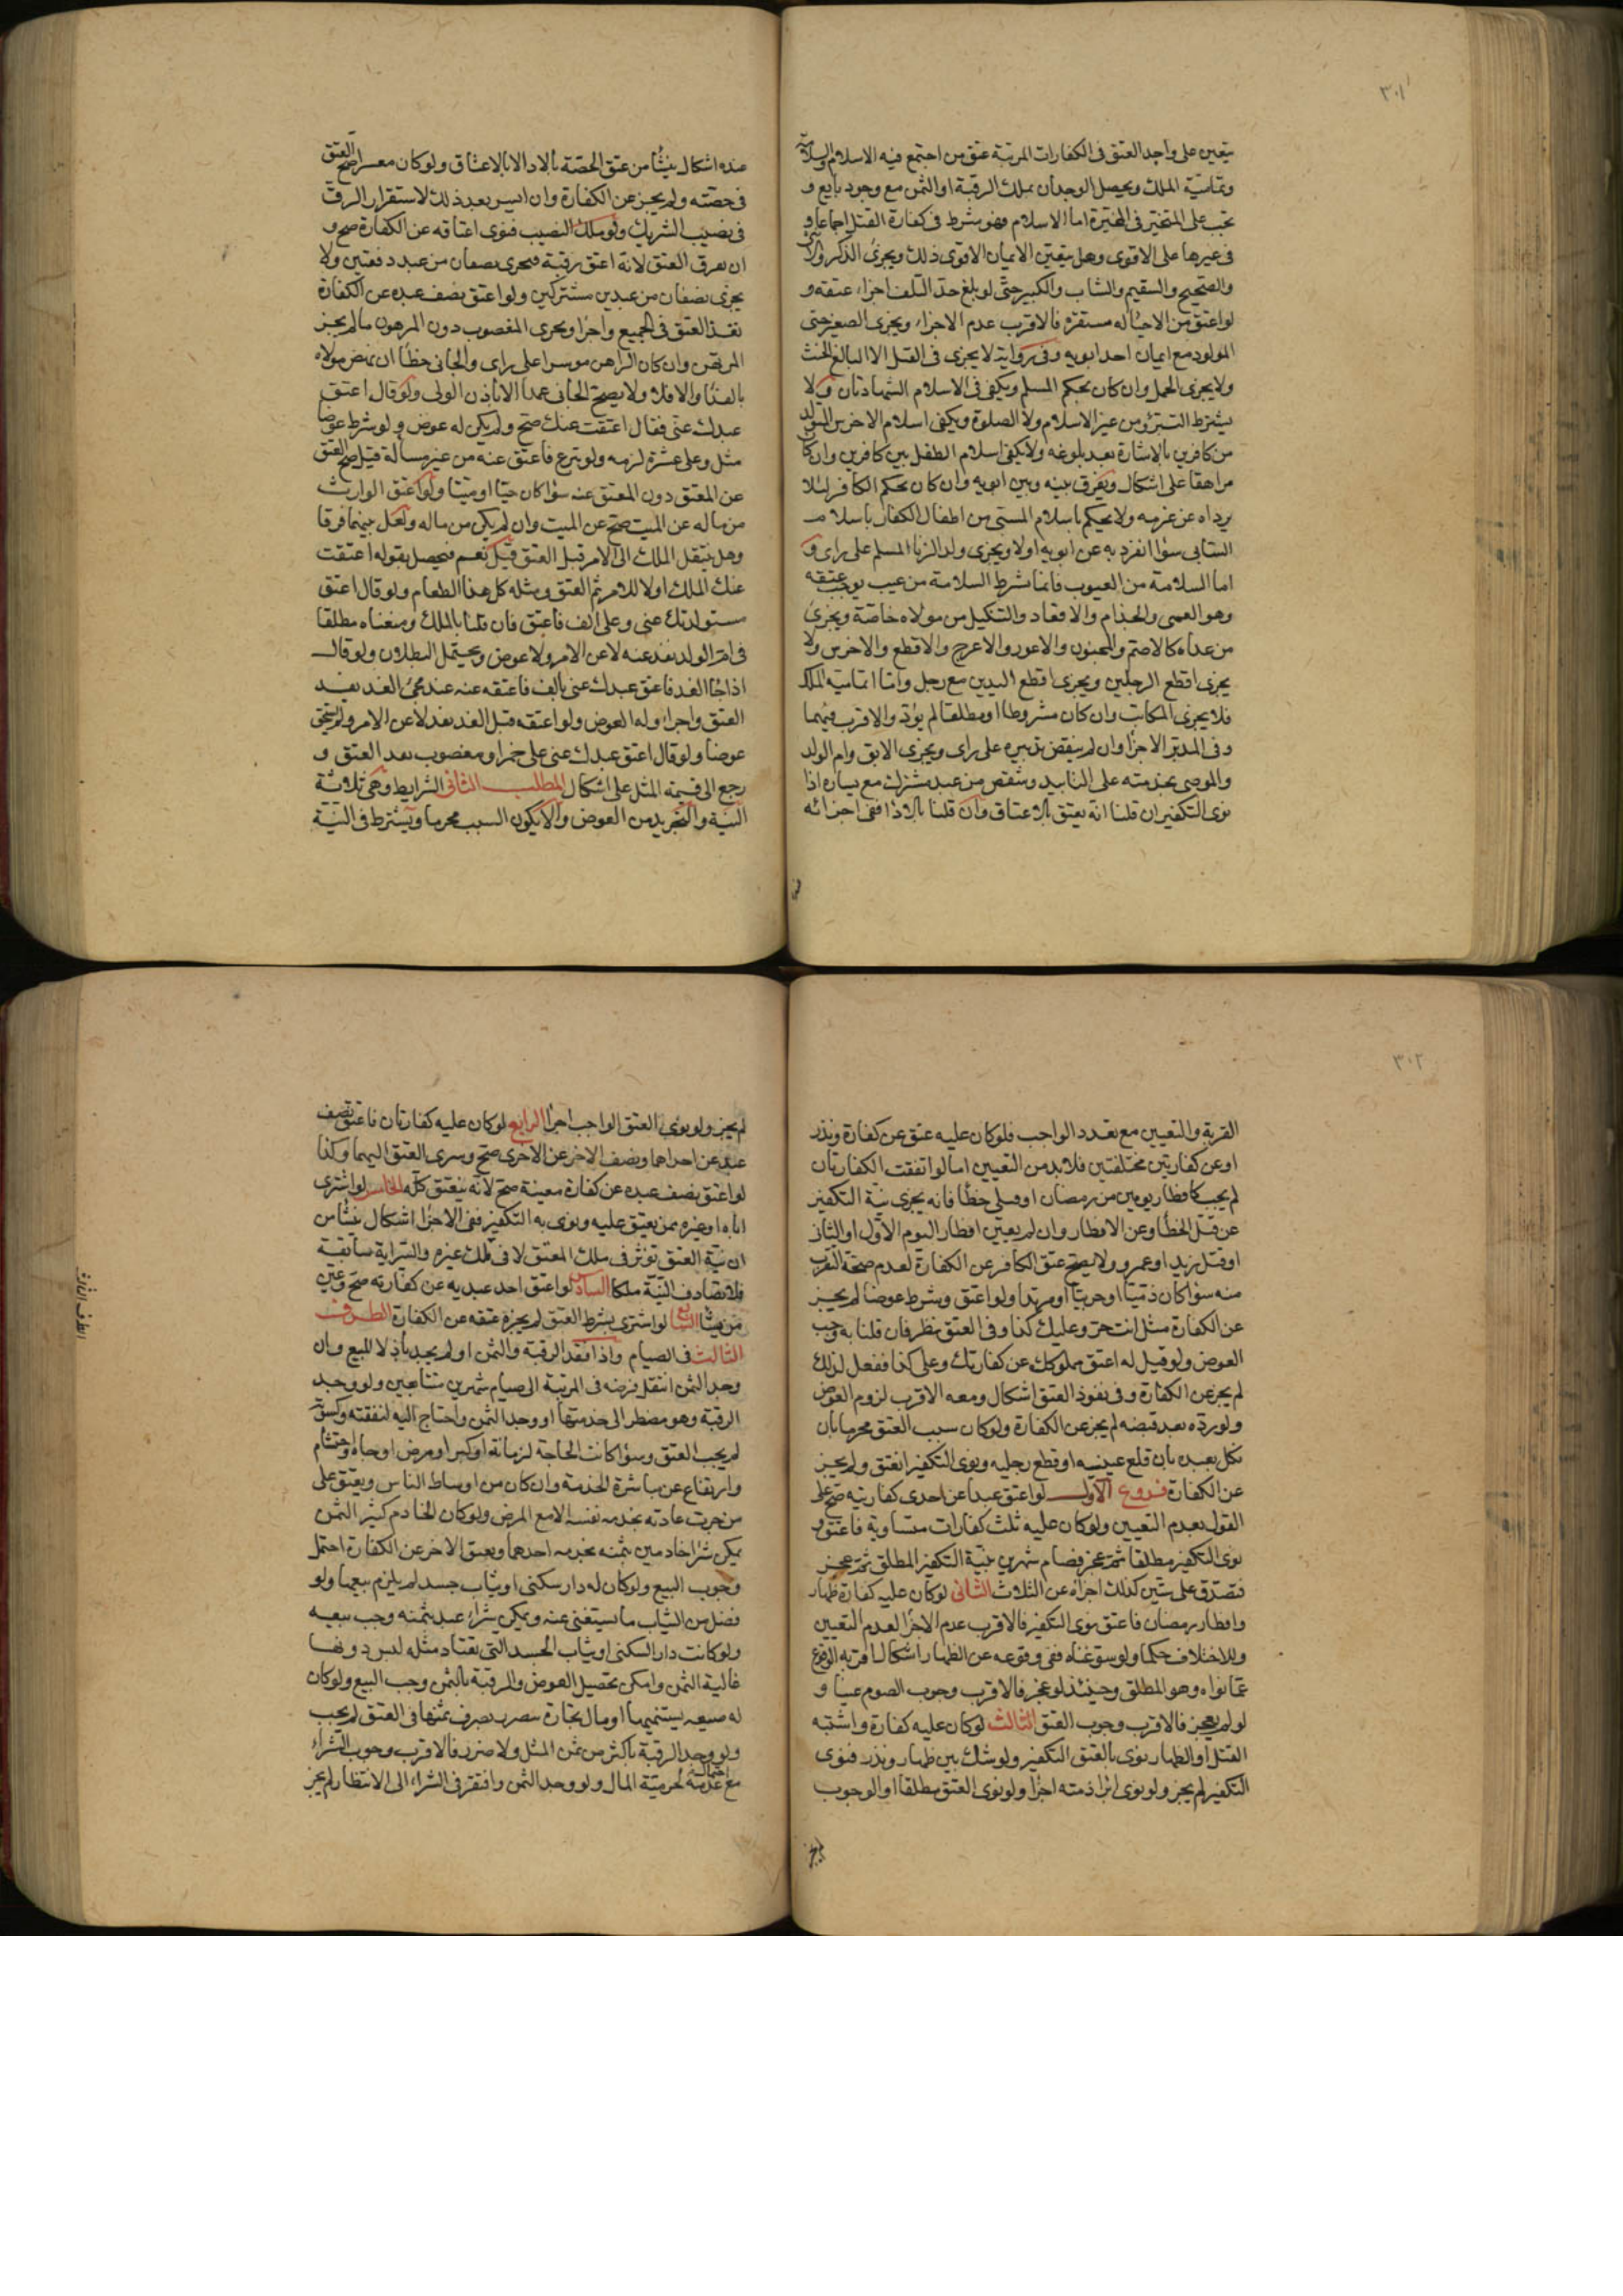 ٣٠١
يتعين على واجد العتق فى الكفارات المرتبة عتق من اجتمع فيه الاسلام والسلامة
وتمامية الملك ويحصل الوجدان بملك الرقبة او الثمن مع وجود بايع و
تجب على المتخير فى المخيرة اما الاسلام فهو شرط فى كفارة القتل اجماعا و
فى غيرها على الاقوى وهل يتعين الايمان الاقوى ذلك ويجزى الذكر والانثى
والصحيح والسقيم والشاب والكبير حتى لو بلغ حد التلف اجزاء عتقه و
لو اعتق من لاحياة له مستقرة فالاقرب عدم الاجزاء ويجزى الصغير حتى
المولود مع ايمان احد ابويه وفى رواية لا يجزى فى القتل الا البالغ الحنث
ولا يجزى الحمل وان كان بحكم المسلم ويكفى فى الاسلام الشهادتان ولا
يشترط التبرؤ من غير الاسلام ولا الصلوة ويكفى اسلام الاخرس المتولد
من كافرين بالاشارة بعد بلوغه ولا يكفى اسلام الطفل بين كافرين وان كان
مراهقا على اشكال ويفرق بينه وبين ابويه وان كان بحكم الكافر لئلا
يرداه عن عزمه ولا يحكم باسلام المسبى من اطفال الكفار باسلام
السابى سواء انفرد به عن ابويه اولا ويجزى ولد الزنا المسلم على راى و
اما السلامة من العيوب فانما شرط السلامة من عيب يوجب عتقه
وهو العمى والجذام والاقعاد والتنكيل من مولاه خاصة ويجزى
من عداه كالاصم والمجنون والاعور والاعرج والاقطع والاخرس ولا
يجزى اقطع الرجلين ويجزى اقطع اليدين مع رجل واما تمامية الملك
فلا يجزى المكاتب وان كان مشروطا او مطلقا لم يؤد والاقرب فيهما
وفى المدبر الاجزاء وان لم ينقض تدبيره على راى ويجزى الابق وام الولد
والموصى بخدمته على التابيد وشقص من عبد مشترك مع يساره اذا
نوى التكفير ان قلنا انه يعتق بالاعتاق وان قلنا بالاداء ففى اجزائه
عنده اشكال ينشأ من عتق الحصة بالاداء لا بالاعتاق ولو كان معسرا صح العتق
فى حصته ولم يجز عن الكفارة وان ايسر بعد ذلك لاستقرار الرق
فى نصيب الشريك ولو ملك النصيب فنوى اعتاقه عن الكفارة صح و
ان تفرق العتق لانه اعتق رقبة فيجزى نصفان من عبد دفعتين ولا
يجزى نصفان من عبدين مشتركين ولو اعتق نصف عبده عن الكفارة
نفذ العتق فى الجميع واجزا ويجزى المغصوب دون المرهون ما لم يجز
المرتهن وان كان الراهن موسرا على راى والجانى خطأ ان نهض مولاه
بالفداء والا فلا ولا يصح الجانى عمدا الا باذن الولى ولو قال اعتق
عبدك عنى فقال اعتقت عنك صح ولم يكن له عوض ولو شرط عوضا
مثل وعلى عشرة لزمه ولو تبرع فاعتق عنه من غير مسألة قيل صح العتق
عن المعتق دون المعتق عنه سواء كان حيا او ميتا ولو اعتق الوارث
من ماله عن الميت صح عن الميت وان لم يكن من ماله ولعل بينهما فرقا
وهل ينتقل الملك الى الامر قبل العتق قيل نعم فيحصل بقوله اعتقت
عنك الملك اولا للامر ثم العتق ومثله كل هذا الطعام ولو قال اعتق
مستولدتك عنى وعلى الف فاعتق فان قلنا بالملك ومنعناه مطلقا
فى ام الولد نفذ عنه لا عن الامر ولا عوض ويحتمل البطلان ولو قال
اذا جاء الغد فاعتق عبدك عنى بالف فاعتقه عنه عند مجئ الغد نفذ
العتق واجزاء وله العوض ولو اعتقه قبل الغد نفذ لا عن الامر ولم يستحق
عوضا ولو قال اعتق عبدك عنى على خمر او مغصوب نفذ العتق و
رجع الى قيمة المثل على اشكال المطلب الثانى الشرايط وهى ثلاثة
النية والتجريد من العوض والا يكون السبب محرما ويشترط فى النية
٣٠٢
القربة والتعيين مع تعدد الواجب فلو كان عليه عتق عن كفارة ونذر
او عن كفارتين مختلفتين فلا بد من التعيين اما لو اتفقت الكفارتان
لم يجب كافطار يومين من رمضان او قتلى خطأ فانه يجزى نية التكفير
عن قتل الخطأ وعن الافطار وان لم يعين افطار اليوم الاول او الثانى
او قتل زيد او عمرو ولا يصح عتق الكافر عن الكفارة لعدم صحة التقرب
منه سواء كان ذميا او حربيا او مرتدا ولو اعتق وشرط عوضا لم يجز
عن الكفارة مثل انت حر وعليك كذا وفى العتق نظر فان قلنا به وجب
العوض ولو قيل له اعتق مملوكك عن كفارتك وعلى كذا ففعل لذلك
لم يجز عن الكفارة وفى نفوذ العتق اشكال ومعه الاقرب لزوم العوض
ولو رده بعد قبضه لم يجز عن الكفارة ولو كان سبب العتق محرما بان
نكل بعبده بان قلع عينيه او قطع رجليه ونوى التكفير انعتق ولم يجز
عن الكفارة فروع الاول لو اعتق عبدا عن احدى كفارتيه صح على
القول بعدم التعيين ولو كان عليه ثلث كفارات متساوية فاعتق و
نوى التكفير مطلقا ثم عجز فصام شهرين بنية التكفير المطلق ثم عجز
فتصدق على ستين كذلك اجزاه عن الثلاث الثانى لو كان عليه كفارة ظهار
وافطار رمضان فاعتق ونوى التكفير فالاقرب عدم الاجزا لعدم التعيين
وللاختلاف حكما ولو سوغناه ففى وقوعه عن الظهار اشكال اقربه الوقوع
عما نواه وهو المطلق وحينئذ لو عجز فالاقرب وجوب الصوم عينا و
لو لم يعجز فالاقرب وجوب العتق الثالث لو كان عليه كفارة واشتبه
القتل او الظهار نوى بالعتق التكفير ولو شك بين ظهار ونذر فنوى
التكفير لم يجز ولو نوى ابراء ذمته اجزا ولو نوى العتق مطلقا او الوجوب
لم يجز ولو نوى العتق الواجب اجزا الرابع لو كان عليه كفارتان فاعتق نصف
عبد عن احداهما ونصف الاخر عن الاخرى صح وسرى العتق اليهما وكذا
لو اعتق نصف عبده عن كفارة معينة صح لانه ينعتق كله الخامس لو اشترى
اباه او غيره ممن يعتق عليه ونوى به التكفير ففى الاجزا اشكال ينشأ من
ان نية العتق تؤثر فى ملك المعتق لا فى ملك غيره والسراية سابقة
فلا تصادف النية ملكا السادس لو اعتق احد عبديه عن كفارته صح وعين
من يشاء السابع لو اشترى بشرط العتق لم يجزه عتقه عن الكفارة الطرف
الثالث فى الصيام واذا فقد الرقبة والثمن او لم يجد باذلا للبيع وان
وجد الثمن انتقل فرضه فى المرتبة الى صيام شهرين متتابعين ولو وجد
الرقبة وهو مضطر الى خدمتها او وجد الثمن واحتاج اليه لنفقته وكسوته
لم يجب العتق وسواء كانت الحاجة لزمانة او كبر او مرض او جاه واحتشام
وارتفاع عن مباشرة الخدمة وان كان من اوساط الناس ويعتق على
من جرت عادته بخدمة نفسه الا مع المرض ولو كان الخادم كثير الثمن
يمكن شراء خادمين بثمنه يخدمه احدهما ويعتق الاخر عن الكفارة احتمل
وجوب البيع ولو كان له دار سكنى او ثياب جسد لم يلزم بيعها ولو
فضل من الثياب ما يستغنى عنه ويمكن شراء عبد بثمنه وجب بيعه
ولو كانت دار السكنى او ثياب الجسد التى يعتاد مثله لبس دونها
غالية الثمن وامكن تحصيل العوض والرقبة بالثمن وجب البيع ولو كان
له ضيعة يستنميها او مال تجارة يتضرر بصرف ثمنها فى العتق لم يجب
ولو وجد الرقبة باكثر من ثمن المثل ولا ضرر فالاقرب وجوب الشراء
مع احتمال عدمه لحرمية المال ولو وجد الثمن وافتقر فى الشراء الى الانتظار لم يجز